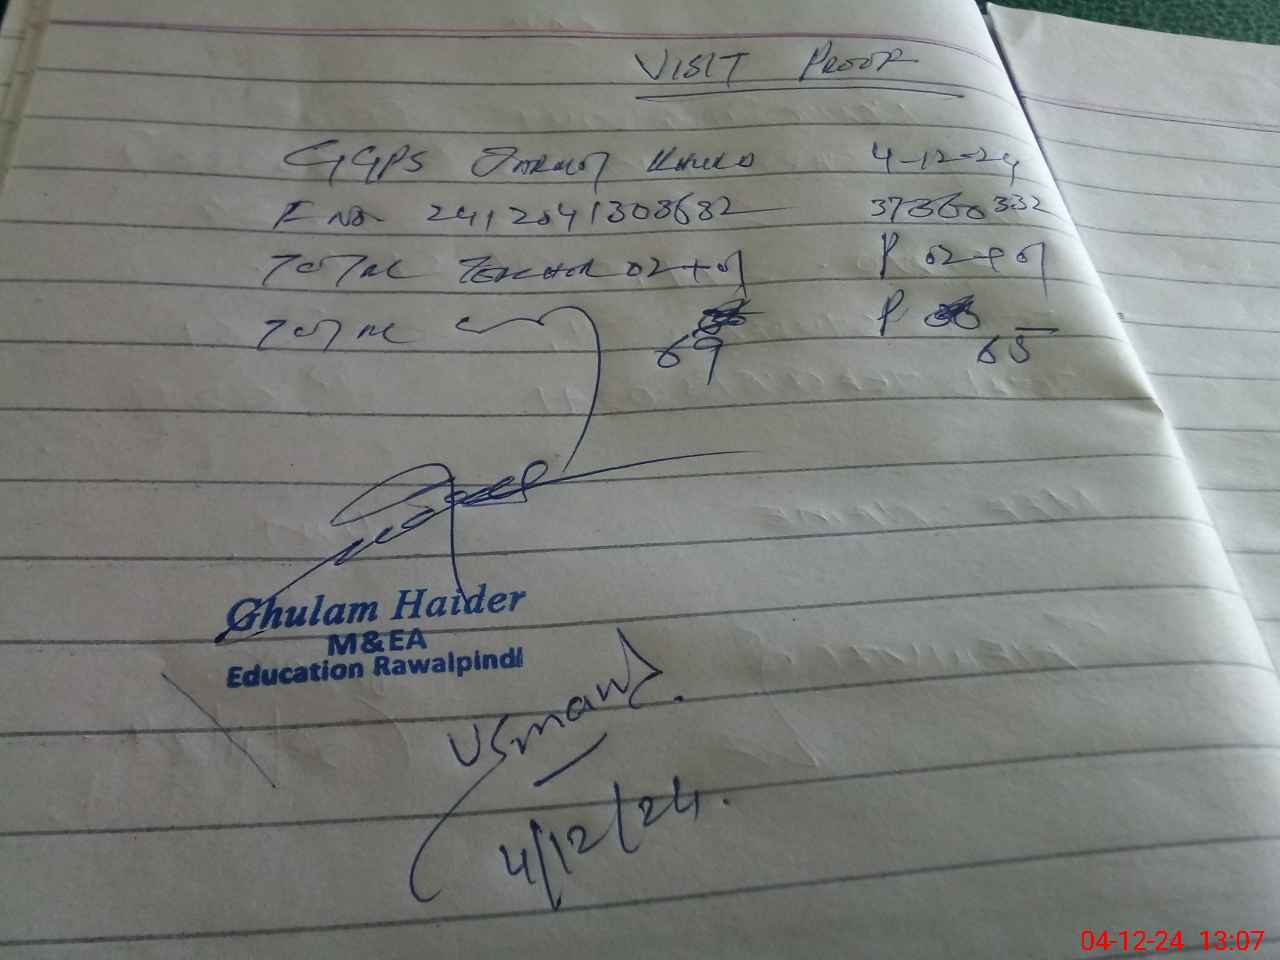 VISIT PROOF
GGPS 4-12-24
F No 2412041303632 37360332
TOTAL TEACHER 02+01 P 02+01
TOTAL 69 P 65
Ghulam Haider
M&EA
Education Rawalpindi
Usman
4/12/24.
04-12-24 13:07